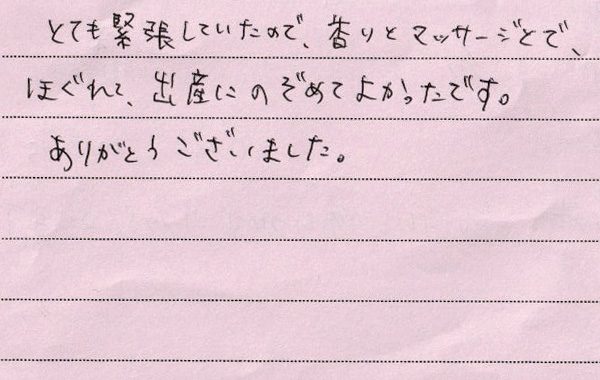 とても緊張していたので、香りとマッサージとで、
ほぐれて、出産にのぞめてよかったです。
ありがとうございました。